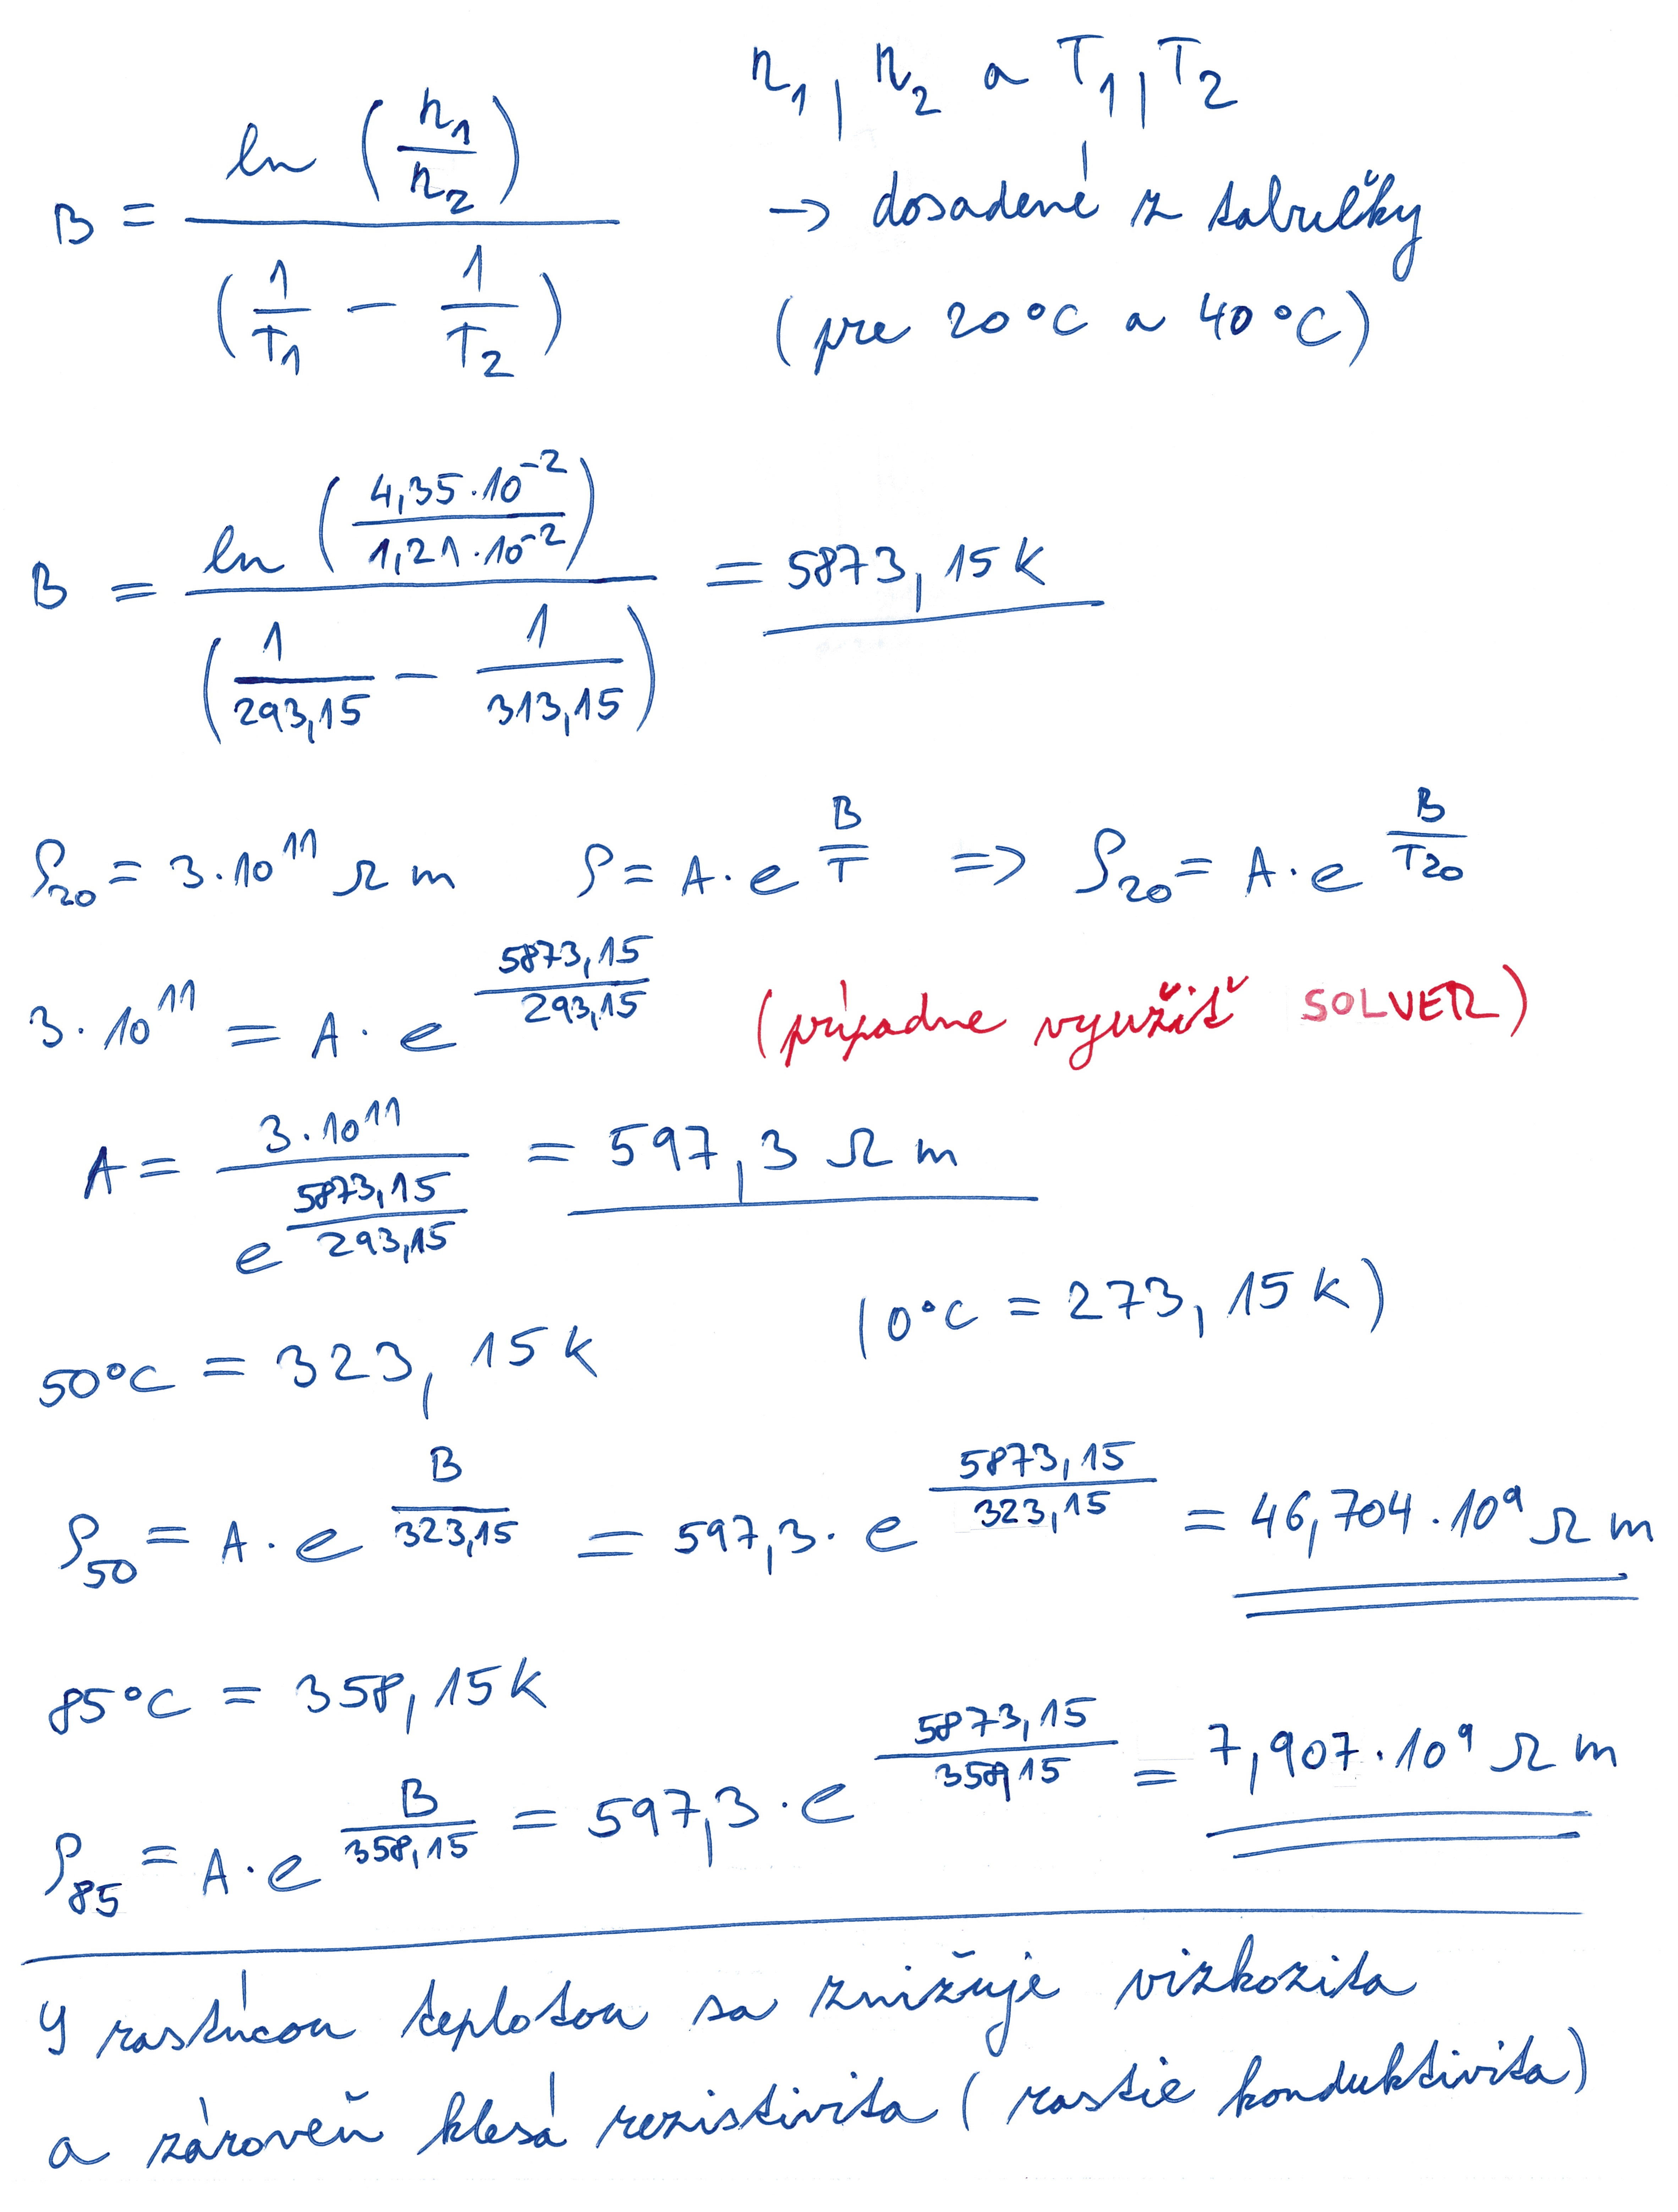 η₁, η₂ a T₁, T₂
B = ln (η₁/η₂) / (1/T₁ − 1/T₂)
→ dosadené z tabuľky
(pre 20°C a 40°C)
B = ln (4,35·10⁻²/1,21·10⁻²) / (1/293,15 − 1/313,15) = 5873,15 K
ρ₂₀ = 3·10¹¹ Ω m ρ = A·e^(B/T) => ρ₂₀ = A·e^(B/T₂₀)
3·10¹¹ = A·e^(5873,15/293,15) (prípadne využiť SOLVER)
A = 3·10¹¹ / e^(5873,15/293,15) = 597,3 Ω m
(0°C = 273,15 K)
50°C = 323,15 K
ρ₅₀ = A·e^(B/323,15) = 597,3·e^(5873,15/323,15) = 46,704·10⁹ Ω m
85°C = 358,15 K
ρ₈₅ = A·e^(B/358,15) = 597,3·e^(5873,15/358,15) = 7,907·10⁹ Ω m
S rastúcou teplotou sa znižuje vizkozita
a zároveň klesá rezistivita (rastie konduktivita)